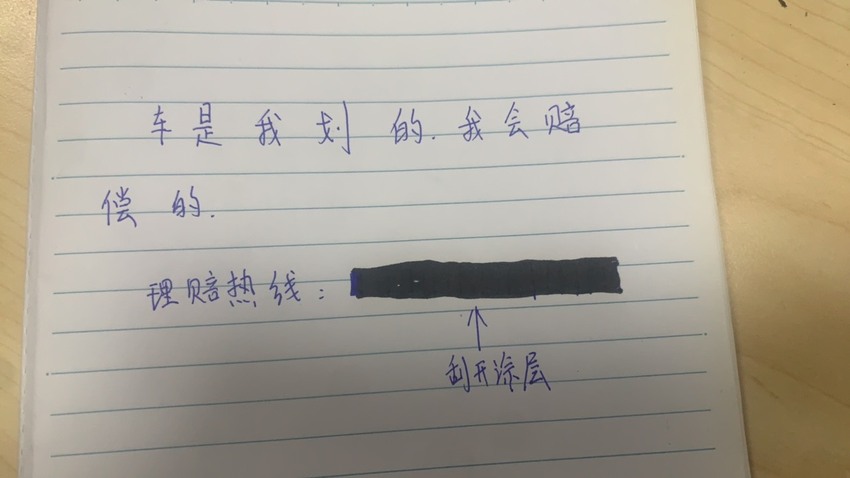 车是我划的.我会赔
偿的.
理赔热线:
刮开涂层